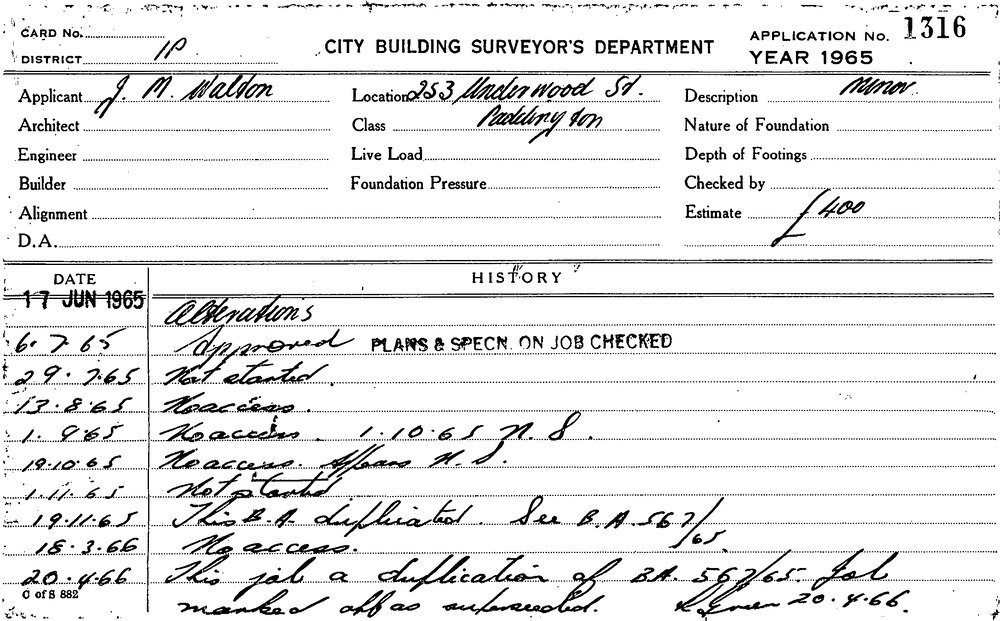 CARD No.
DISTRICT 1P
CITY BUILDING SURVEYOR'S DEPARTMENT
APPLICATION No. 1316
YEAR 1965
Applicant J. M. Walton Location 253 Underwood St. Description Minor
Architect Class Paddington Nature of Foundation
Engineer Live Load Depth of Footings
Builder Foundation Pressure Checked by
Alignment Estimate £400
D.A.
DATE HISTORY
17 JUN 1965 Alterations
6.7.65 Approved PLANS & SPECN. ON JOB CHECKED
29.7.65 Not started.
13.8.65 No access.
1.9.65 No access. 1.10.65 N.S.
19.10.65 No access. Appears N.S.
1.11.65 Not started
19.11.65 This B.A. duplicated. See B.A. 567/65.
18.3.66 No access.
20.4.66 This job a duplication of B.A. 567/65. Job
C of S 882
marked off as superseded. 20.4.66.